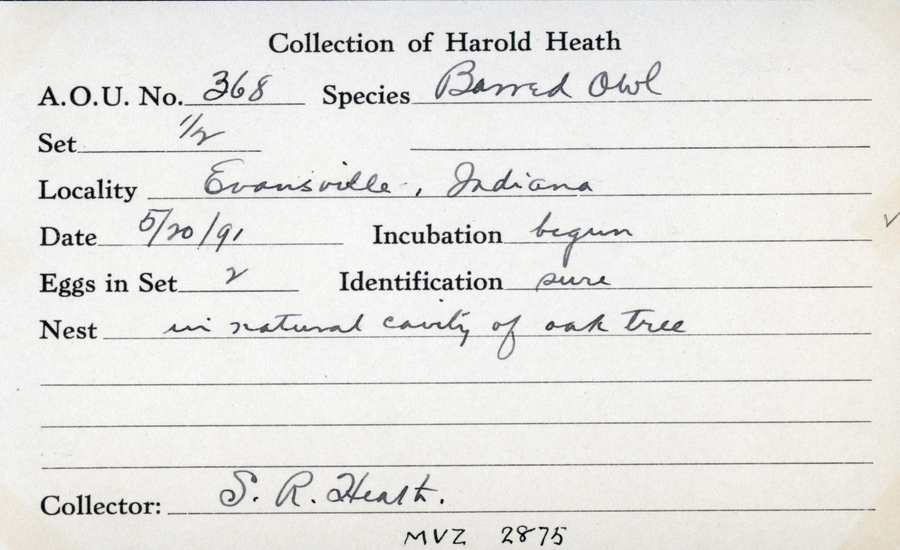 Collection of Harold Heath
A.O.U. No. 368 Species Barred Owl
Set 1/2
Locality Evansville, Indiana
Date 5/20/91 Incubation begun
Eggs in Set 2 Identification sure
Nest in natural cavity of oak tree
Collector: S. R. Heath.
MVZ 2875